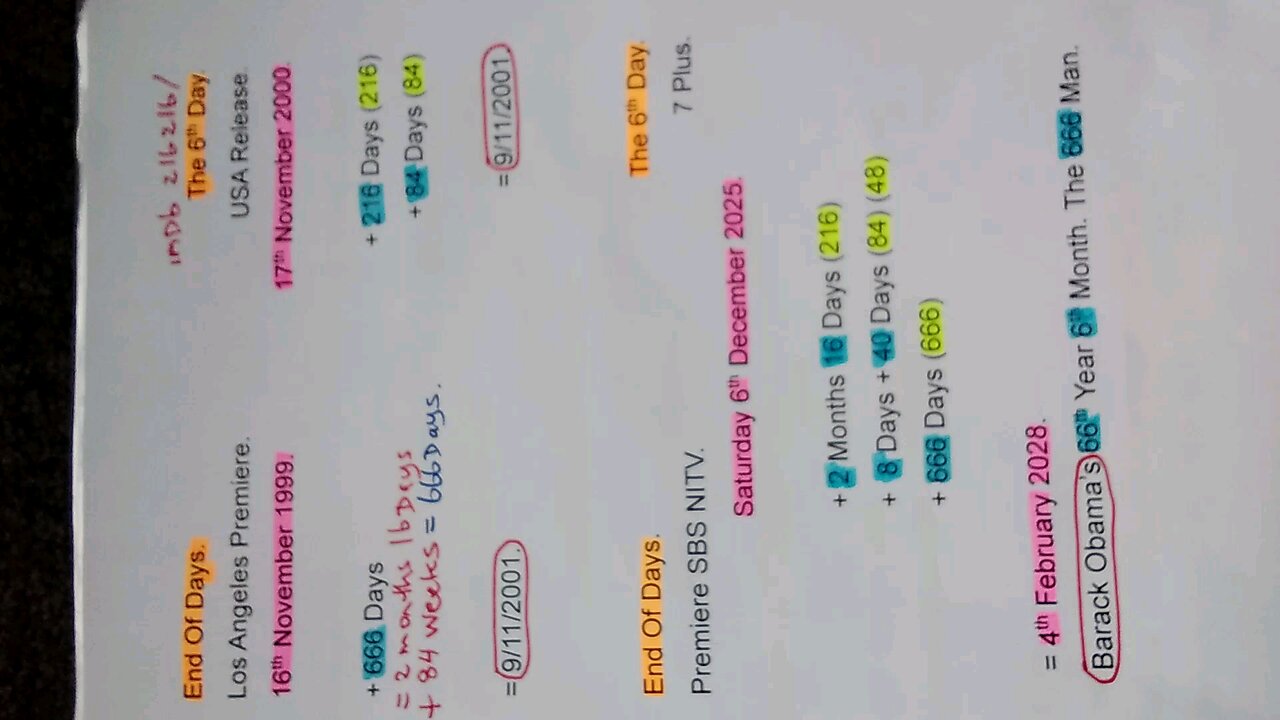 imDb 216216/
End Of Days.
The 6th Day.
Los Angeles Premiere.
USA Release.
16th November 1999.
17th November 2000.
+ 666 Days
+ 216 Days (216)
= 2 months 16 Days
+ 84 Days (84)
+ 84 weeks = 666 Days.
= 9/11/2001.
= 9/11/2001
End Of Days.
The 6th Day.
Premiere SBS NITV.
7 Plus.
Saturday 6th December 2025.
+ 2 Months 16 Days (216)
+ 8 Days + 40 Days (84) (48)
+ 666 Days (666)
= 4th February 2028.
Barack Obama's 66th Year 6th Month. The 666 Man.